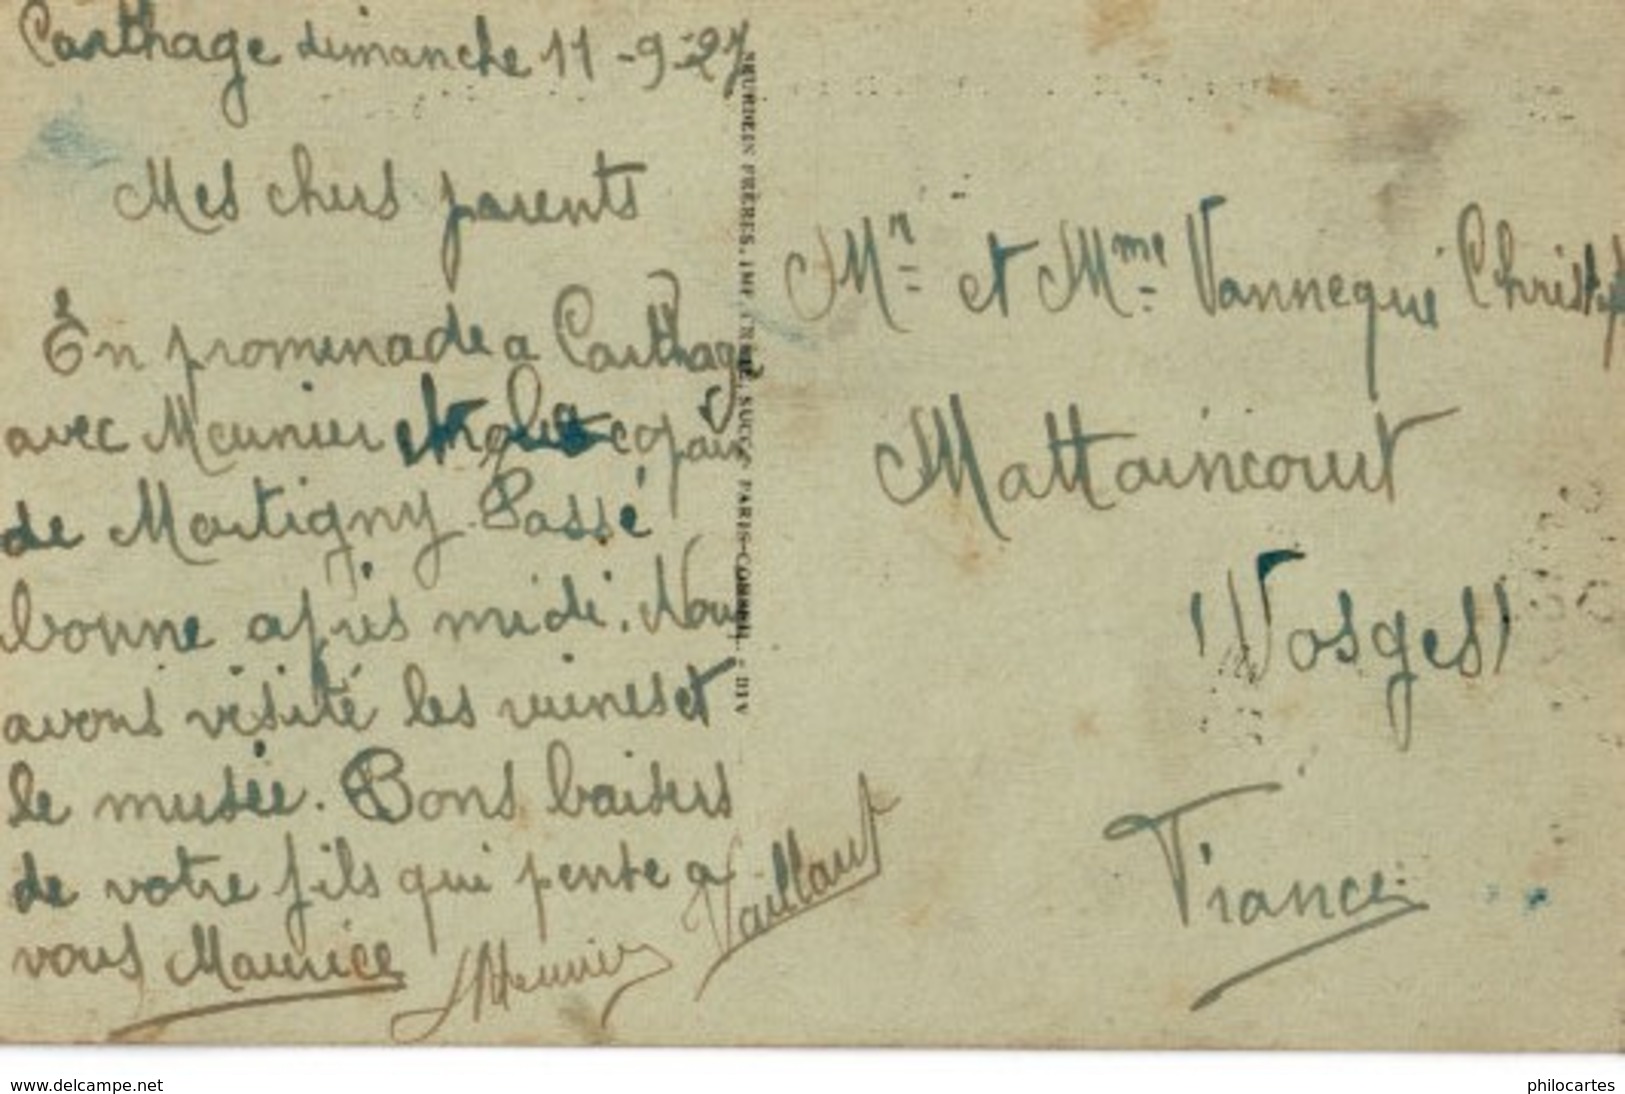 Carthage dimanche 11-9-27
Mes chers parents
En promenade a Carthage
avec Meunier et copain
de Martigny. Passé
bonne après midi. Nous
avons visité les ruines et
le musée. Bons baisers
de votre fils qui pense a
vous Maurice
Meunier
Vaillant
NEURDEIN FRÈRES, IMP. CRÉTÉ, SUCCr PARIS-CORBEIL. - DIV
Mr et Mme Vannequé Christ
Mattaincourt
(Vosges)
France
www.delcampe.net
philocartes